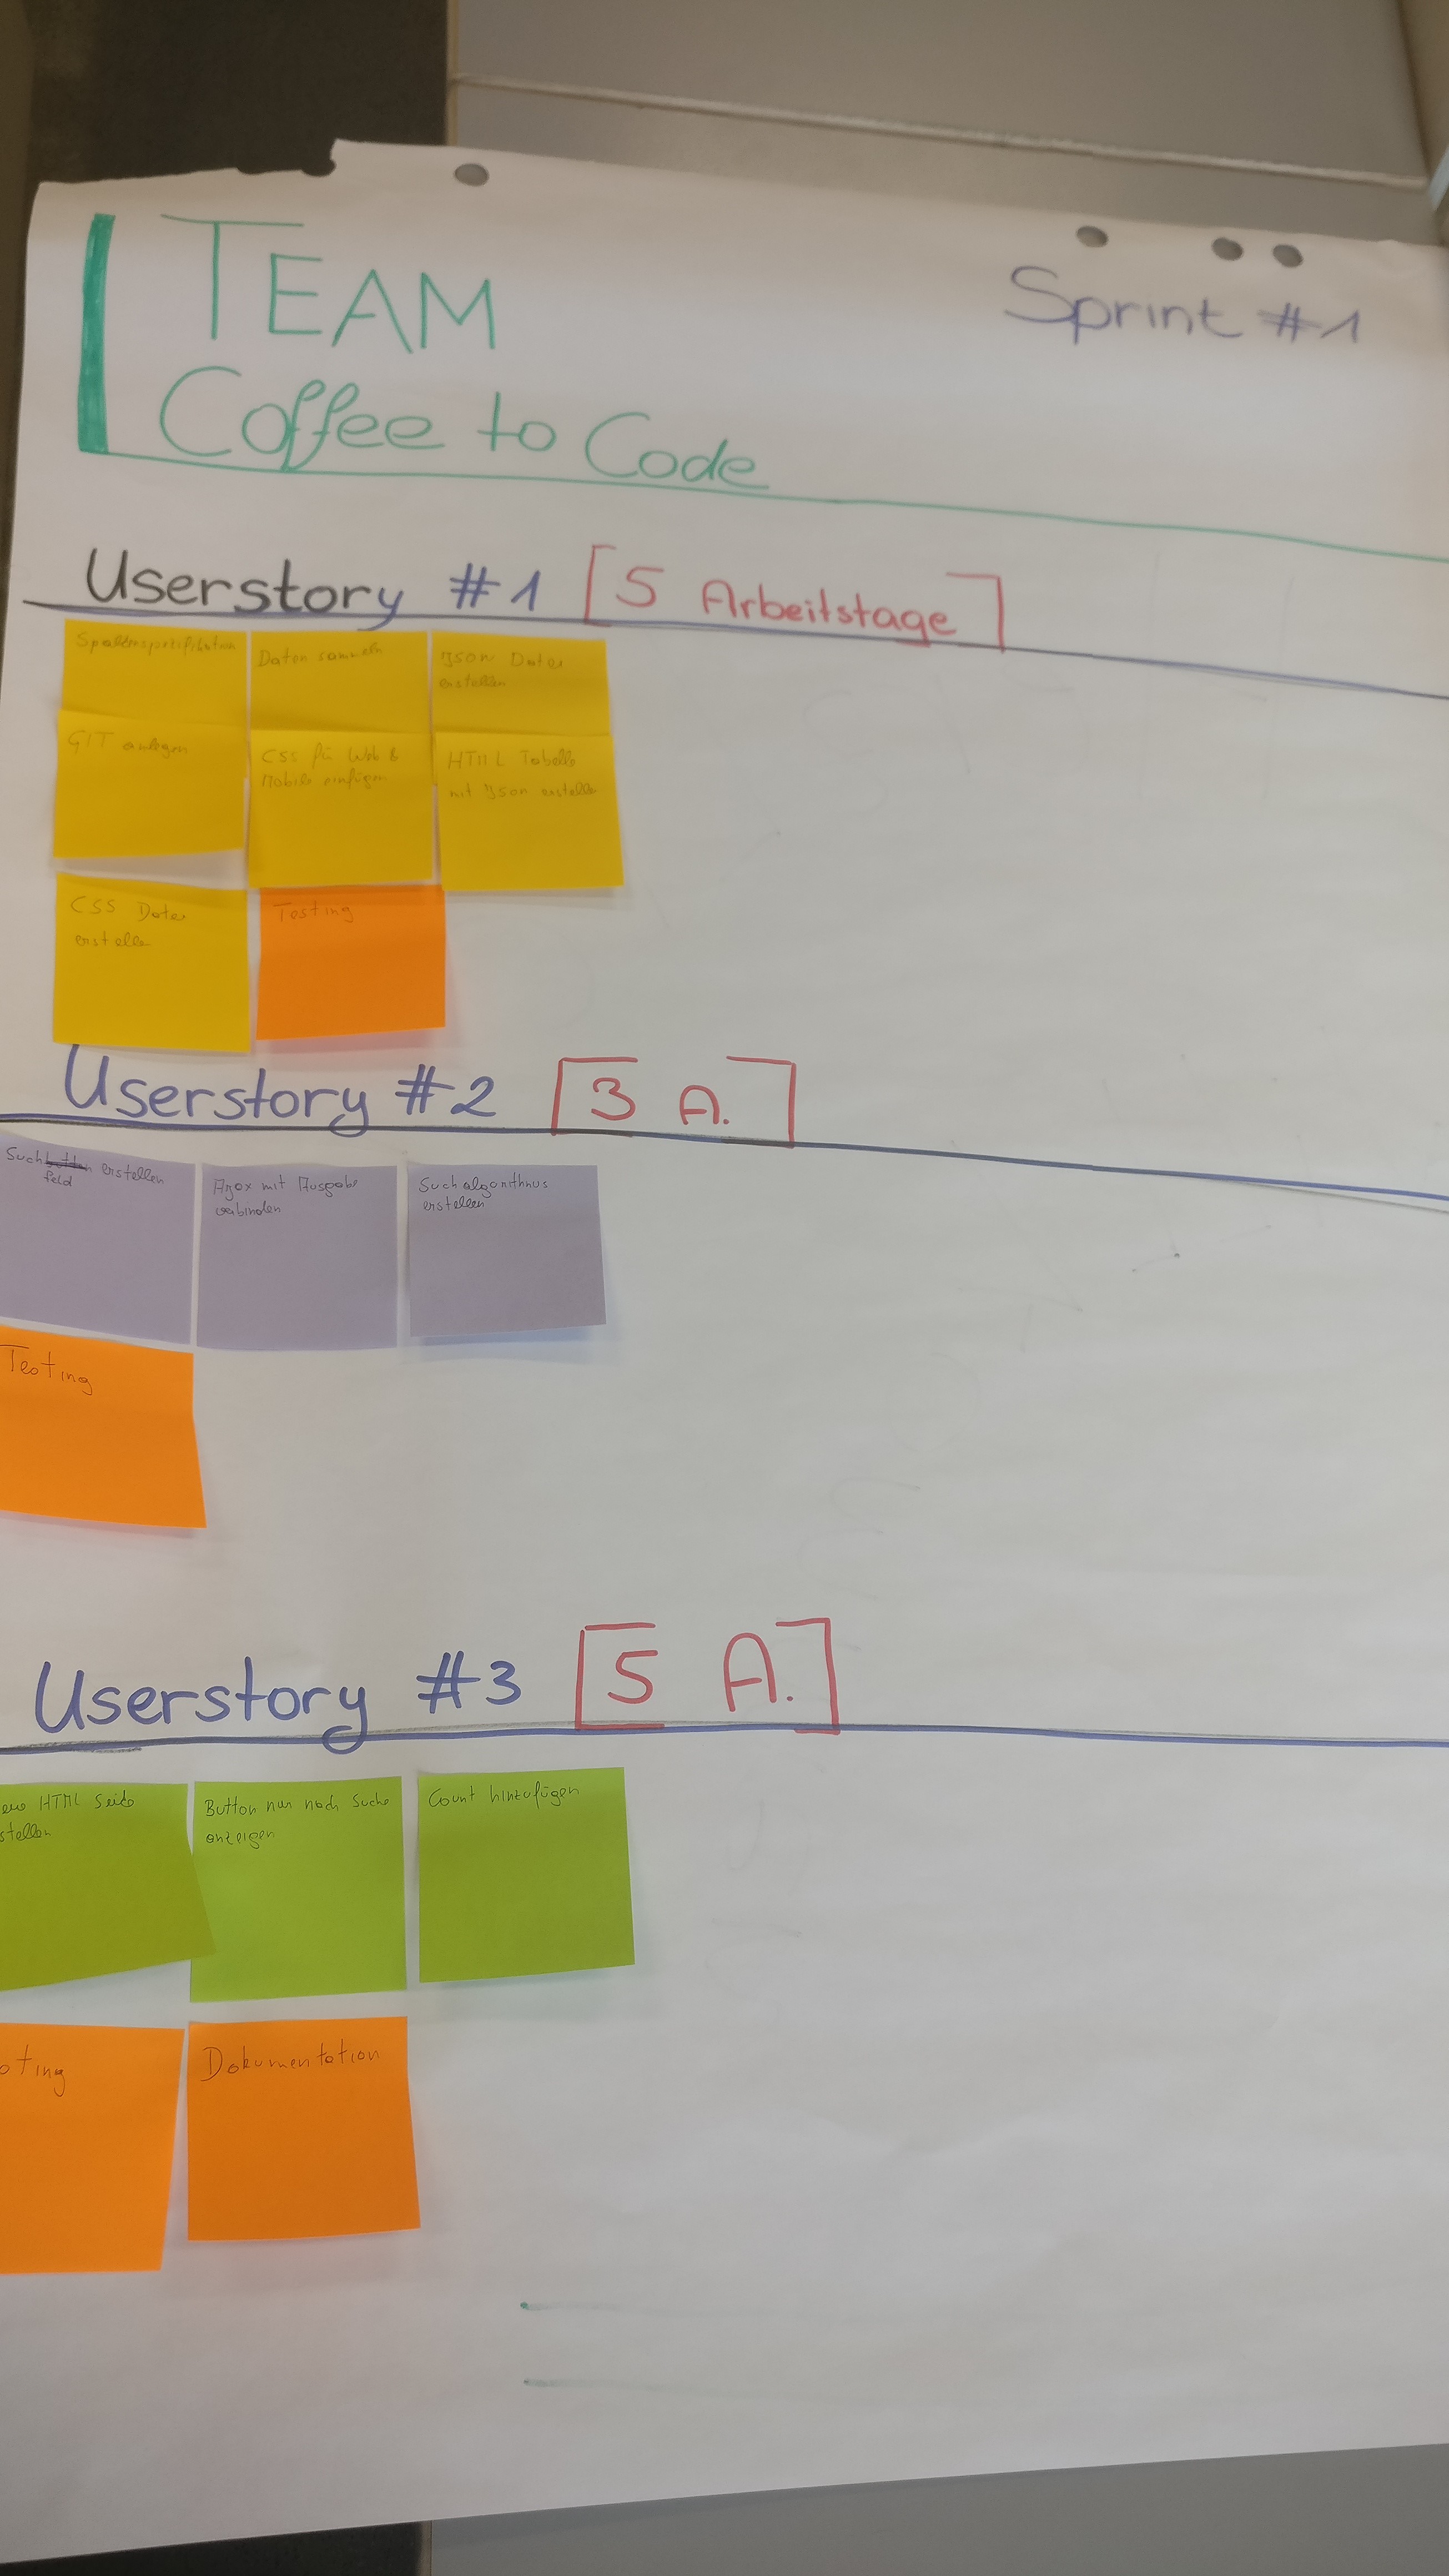 TEAM
Coffee to Code
Sprint #1
Userstory #1 [5 Arbeitstage]
Spaltenspezifikation
Daten sammeln
JSON Datei
erstellen
GIT anlegen
CSS für Web &
Mobile einfügen
HTML Tabelle
mit JSON erstellen
CSS Datei
erstellen
Testing
Userstory #2 [3 A.]
Such erstellen
feld
Ajax mit Ausgabe
verbinden
Suchalgorithmus
erstellen
Testing
Userstory #3 [5 A.]
HTML Seite
stellen
Button nur nach Suche
anzeigen
Count hinzufügen
ting
Dokumentation